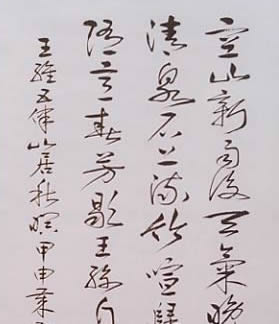 空山新雨後天氣晚
清泉石上流竹喧歸
隨意春芳歇王孫自
王維五律山居秋暝甲申葉